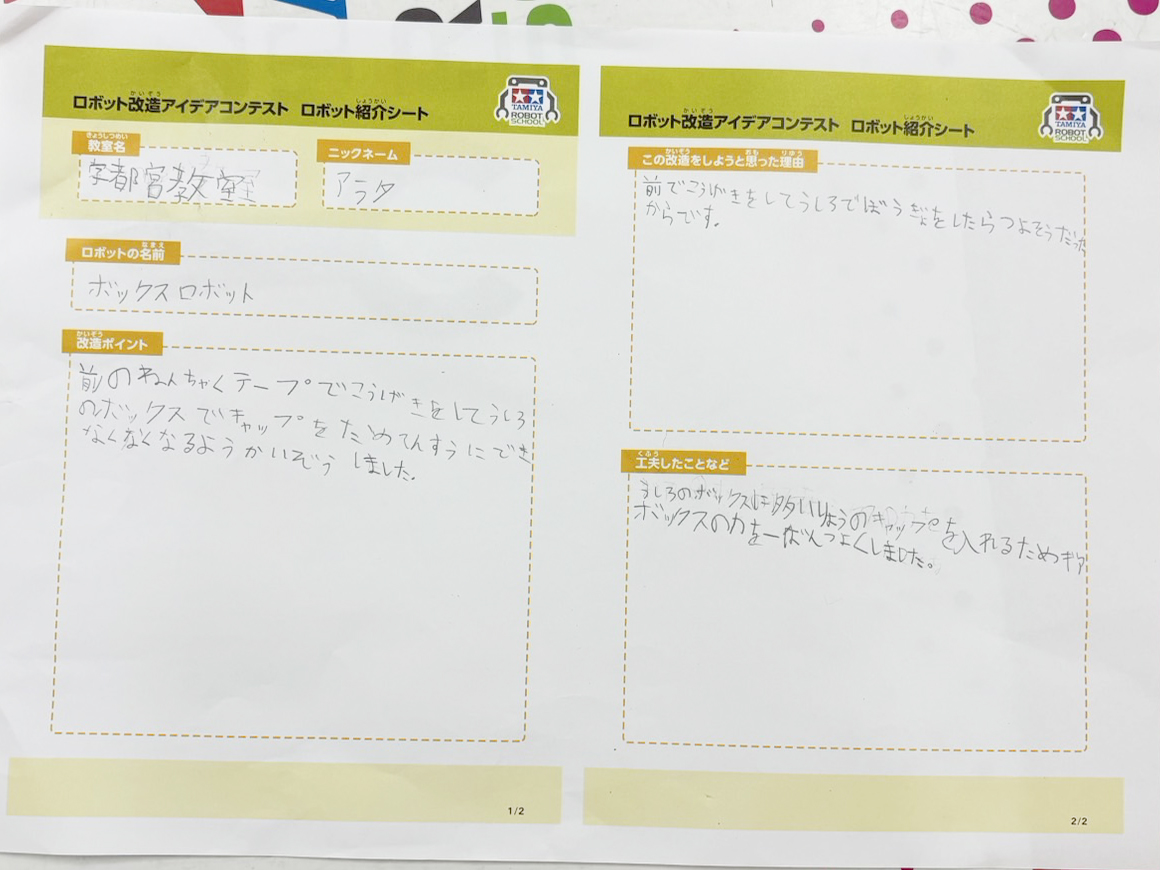 ロボット改造アイデアコンテスト ロボット紹介シート
TAMIYA
ROBOT
SCHOOL
教室名
宇都宮教室
ニックネーム
アラタ
ロボットの名前
ボックスロボット
改造ポイント
前のねんちゃくテープでこうげきをしてうしろ
のボックスでキャップをためてんすうにでき
なくなくなるようかいぞうしました。
1/2
ロボット改造アイデアコンテスト ロボット紹介シート
TAMIYA
ROBOT
SCHOOL
この改造をしようと思った理由
前でこうげきをしてうしろでぼうぎょをしたらつよそうだった
からです。
工夫したことなど
うしろのボックスは多いりょうのキャップを入れるためギア
ボックスの力を一ばんつよくしました。
2/2